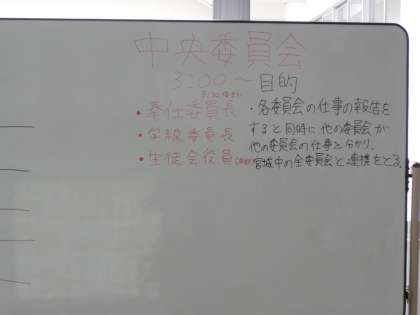 中央委員会
3:00～
目的
・奉仕委員長
・学級委員長
・生徒会役員
・各委員会の仕事の報告を
すると同時に他の委員会が
他の委員会の仕事を分かり、
宮城中の全委員会と連携をとる。